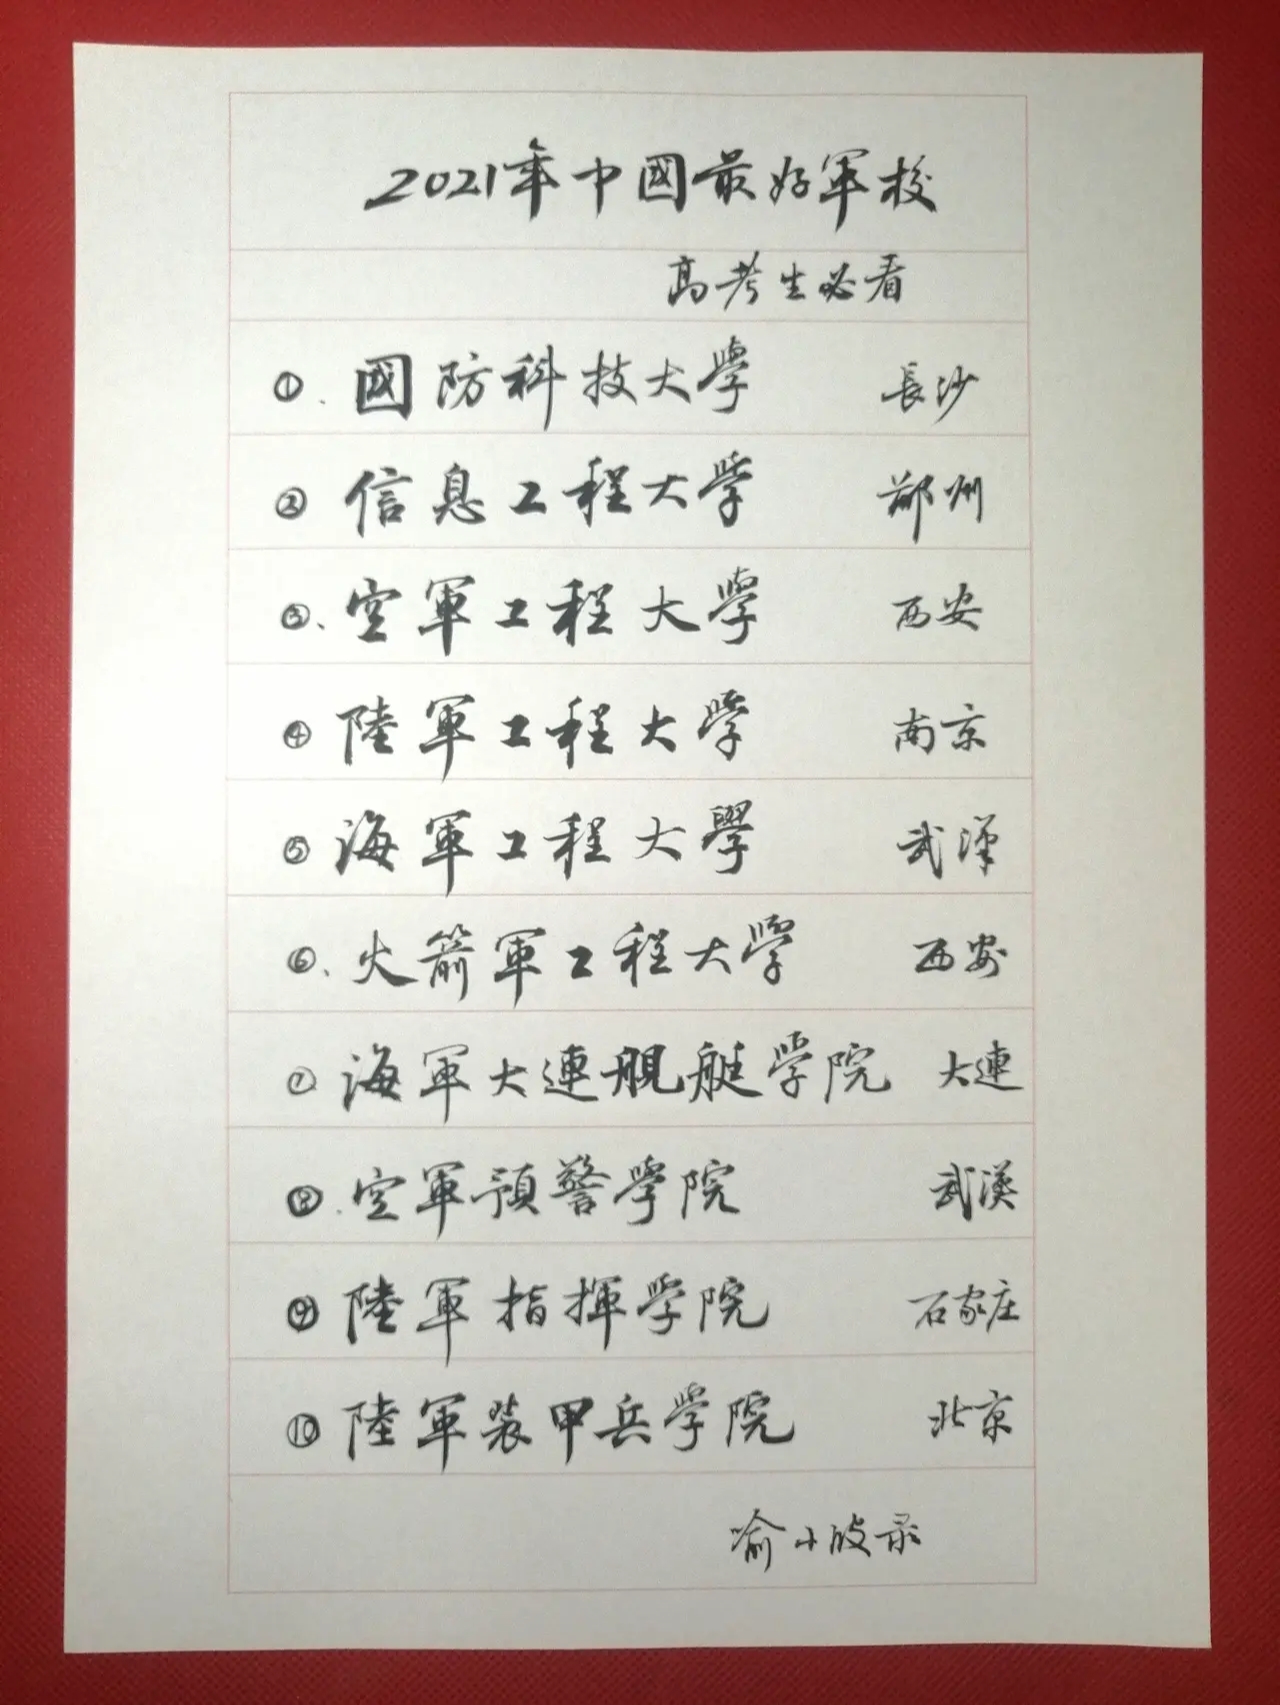 2021年中國最好軍校
高考生必看
①.國防科技大學 長沙
②信息工程大學 鄭州
③、空軍工程大學 西安
④陸軍工程大學 南京
⑤海軍工程大學 武漢
⑥、火箭軍工程大學 西安
⑦海軍大連舰艇學院 大連
⑧.空軍預警學院 武漢
⑨陸軍指揮學院 石家庄
⑩陸軍装甲兵學院 北京
喻小波录